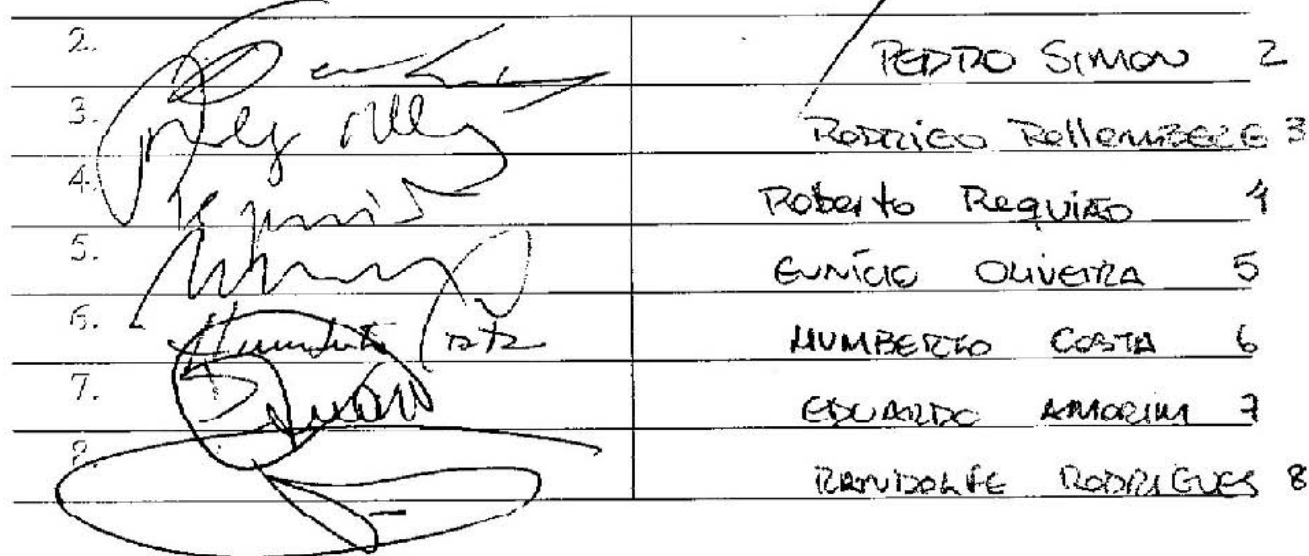 2. PEDRO SIMON 2
3. RODRIGO Rollemberg 3
4. Roberto Requião 4
5. EUNÍCIO OLIVEIRA 5
6. Humberto Costa HUMBERTO COSTA 6
7. EDUARDO AMORIM 7
8. RANDOLFE RODRIGUES 8